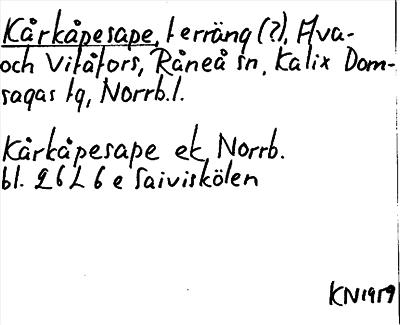 Kårkåpesape, terräng (?), Ava-
och Vitåfors, Råneå sn, Kalix Dom-
sagas tg, Norrb. l.
Kårkåpesape ek, Norrb.
bl. 26L6e Saiviskölen
KN1959